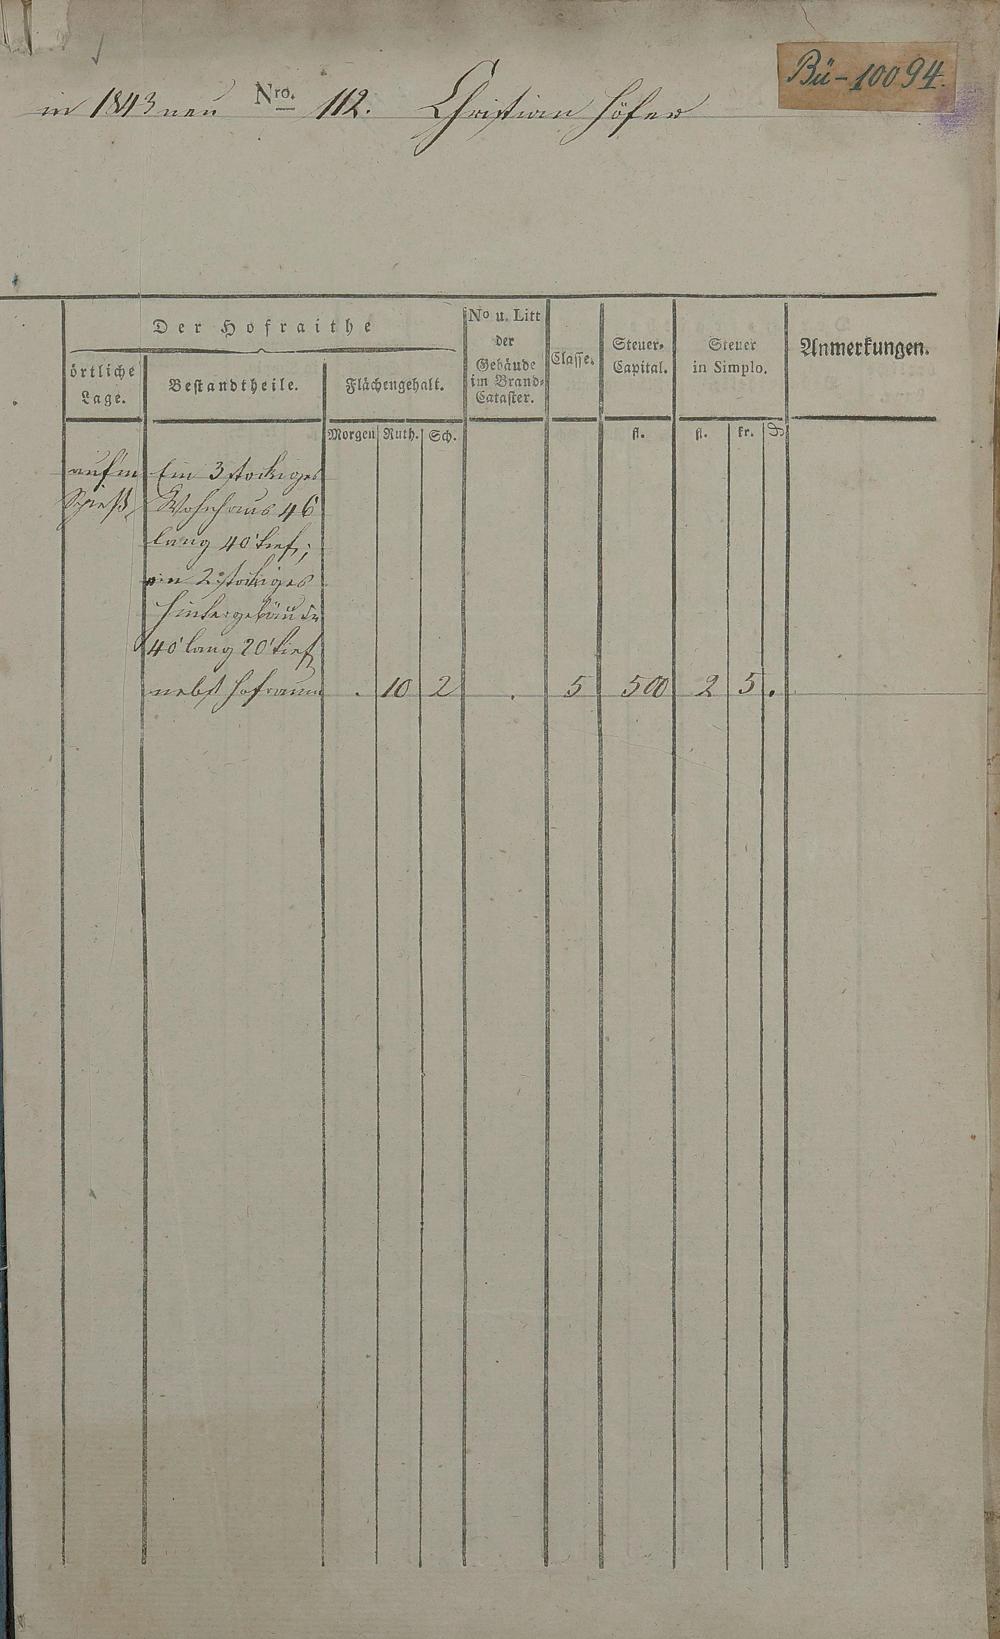 Bü-10094.
in 1843 neu Nro. 112. Christian Höfer
Der Hofraithe
örtliche Lage.
Bestandtheile.
Flächengehalt.
No u. Litt
der
Gebäude
im Brand-
Cataster.
Classe.
Steuer-
Capital.
Steuer
in Simplo.
Anmerkungen.
Morgen Ruth. Sch. fl. fl. kr. ₰
aufm Ein 3 stockiges
Spieß Wohnhaus 46'
lang 40' tief;
ein 2 stockiges
Hintergebäude
40' lang 20' tief
nebst Hofraum . 10 2 . 5 500 2 5 .